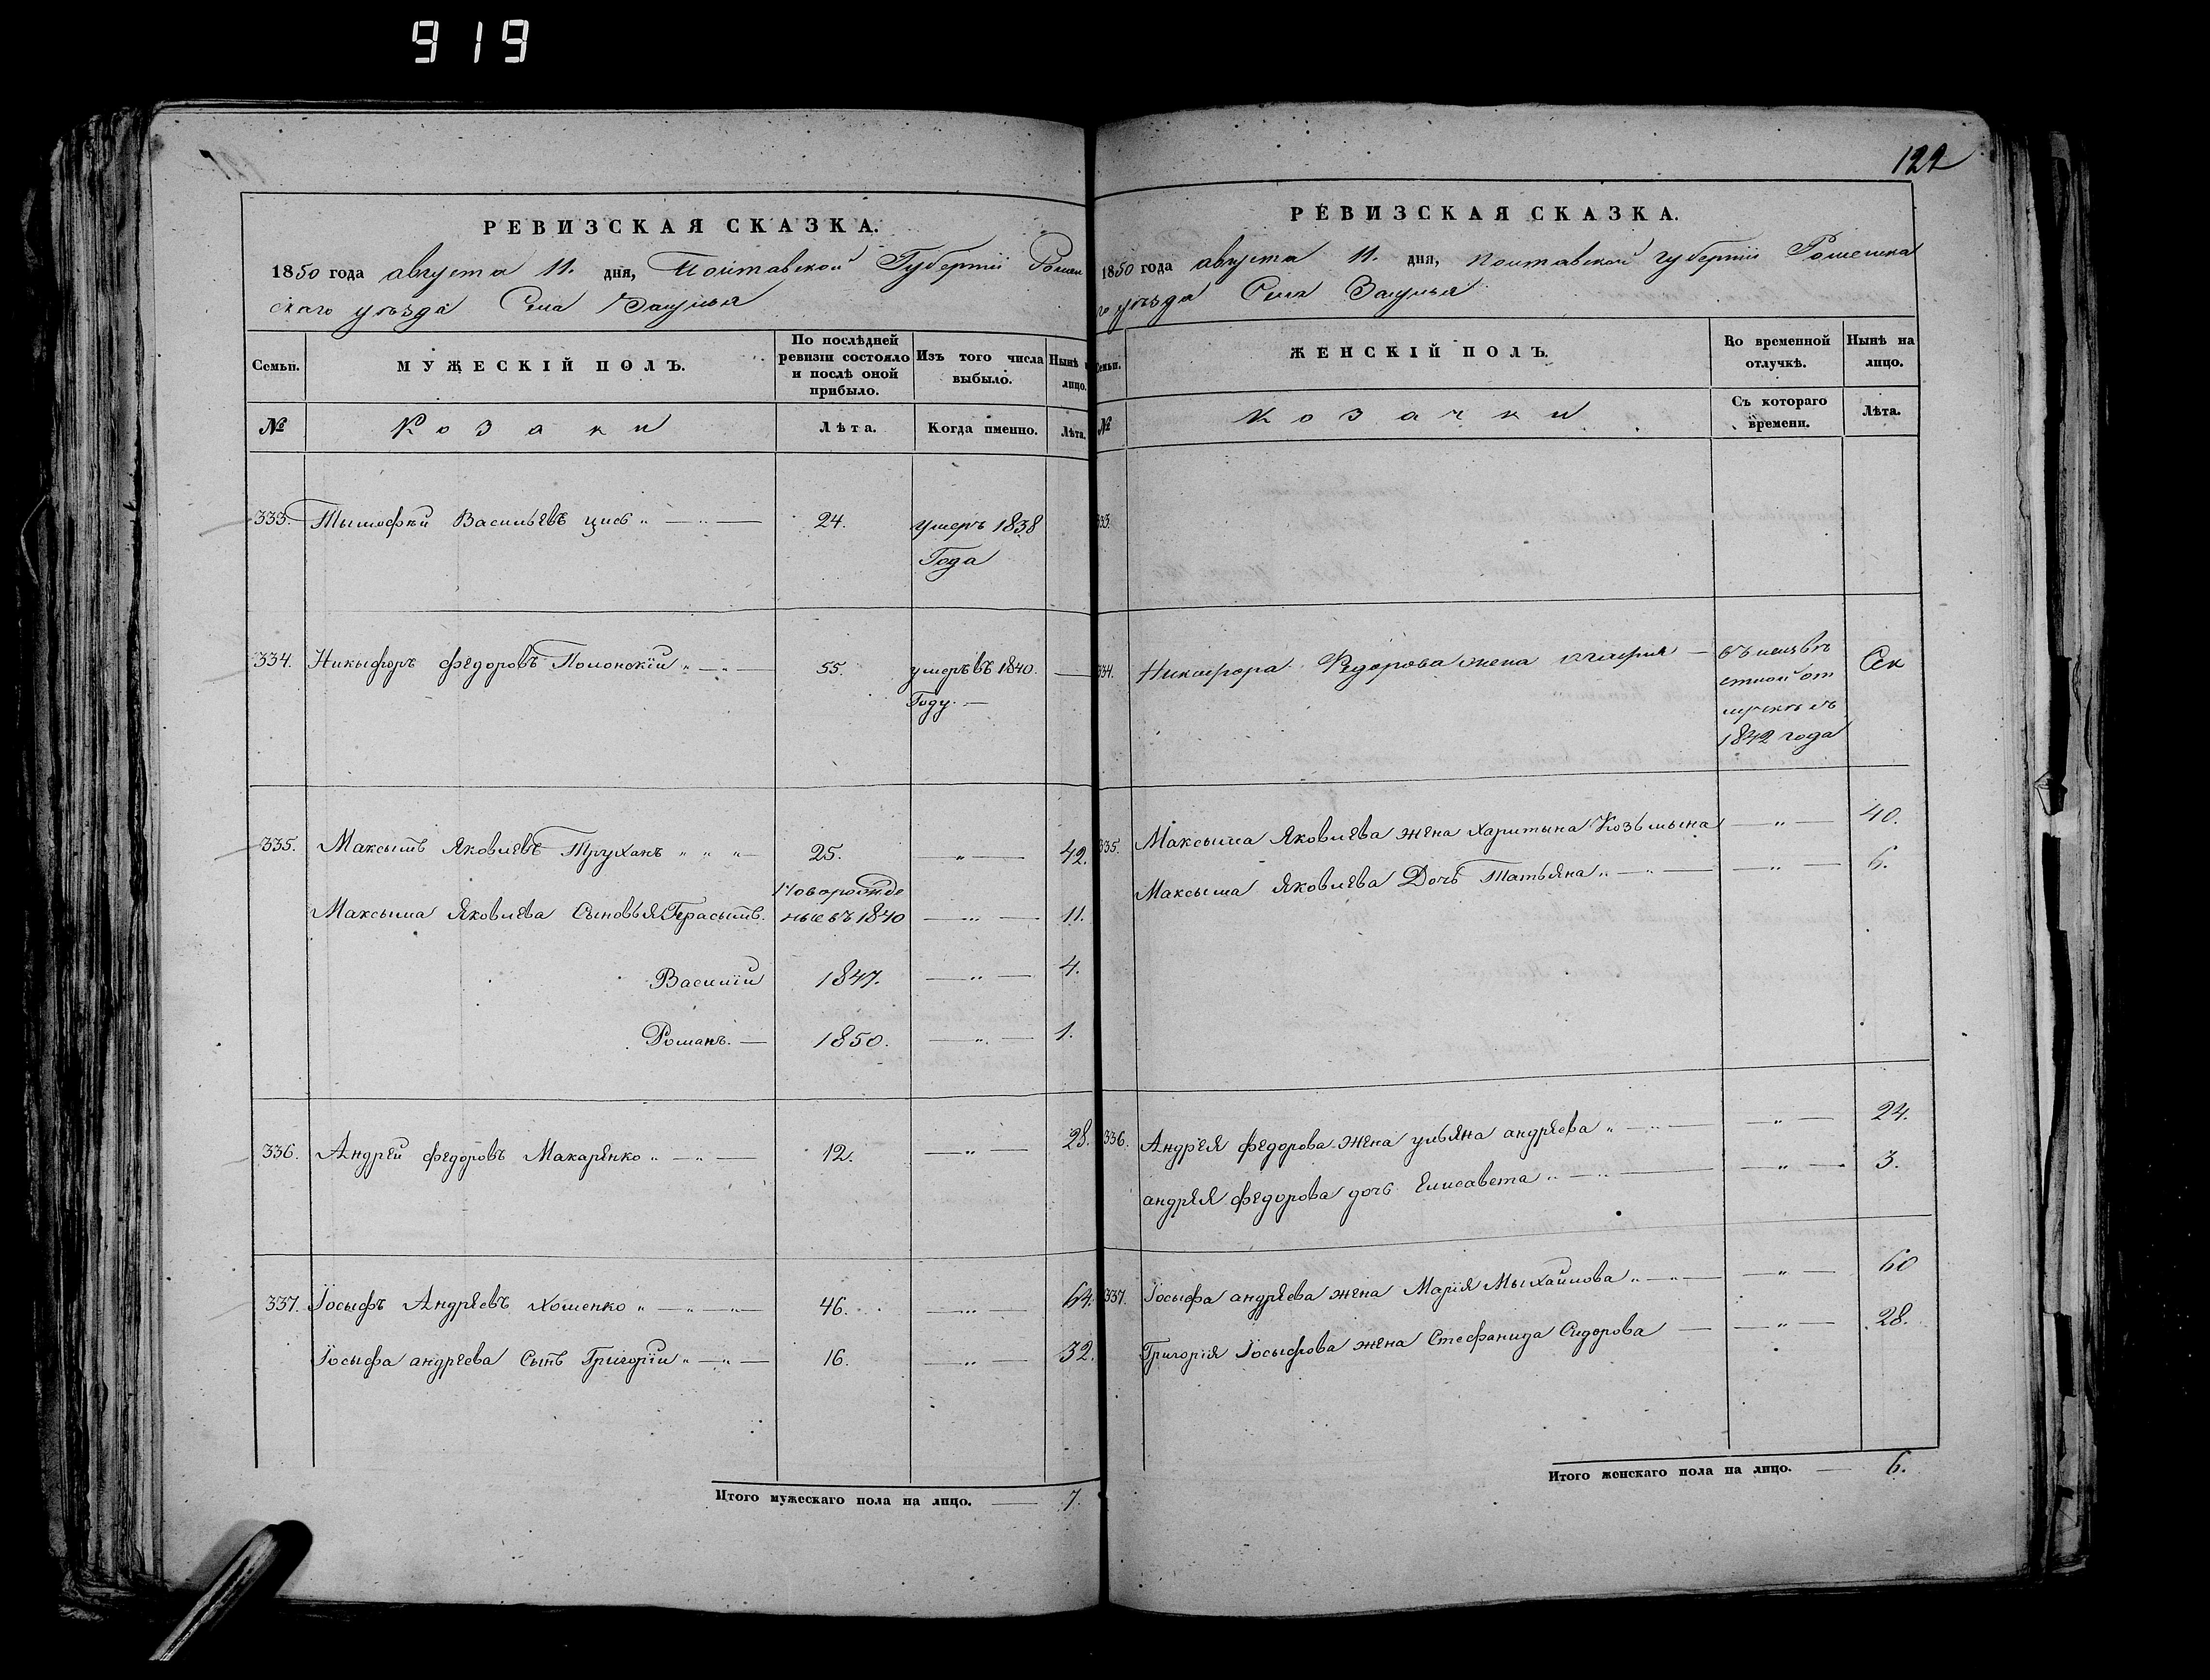 919
РЕВИЗСКАЯ СКАЗКА.
1850 года августа 11. дня, Полтавской Губерніи Ромен
скаго уѣзда Села
Семьи.
МУЖЕСКІЙ ПОЛЪ.
По послѣдней
ревизіи состояло
и послѣ оной
прибыло.
Изъ того числа
выбыло.
Нынѣ
лицо.
№
Козаки
Лѣта.
Когда именно.
Лѣта.
333. Тымофѣй Васильевъ 24. умеръ 1838
Года
334. Никыфоръ Федоровъ Полонскій „ — „ — 55. умеръ въ 1840. —
Году. —
335. Максымъ Яковлевъ Труханъ „ „ „ — 25. — „ — 42.
Новорожде
Максыма Яковлева Сыновья Герасымъ. ные въ 1840 — „ — 11.
Василій 1847. — „ — 4.
Романъ. — 1850. — „ — 1.
336. Андрей Федоровъ Макаренко „ — „ — 12. — „ — 28.
337. Іосыфъ Андреевъ Хоменко „ — „ — „ — 46. — „ — 64.
Іосыфа андреева Сынъ Григорій „ — „ — 16. — „ — 32.
Итого мужескаго пола на лицо. — 7.
122
РЕВИЗСКАЯ СКАЗКА.
1850 года августа 11. дня, Полтавской губерніи Роменска
го уѣзда Села
Семьи.
ЖЕНСКІЙ ПОЛЪ.
Во временной
отлучкѣ.
Нынѣ на
лицо.
№
Козачки
Съ котораго
времени.
Лѣта.
333.
334. Никифора Федорова жена — въ неизвѣ
стной от
лучкѣ съ
1842 года
335. Максыма Яковлева жена Харитына Козьмына — „ — 40.
Максыма Яковлева Дочь Татьяна „ — „ — — „ — 6.
336. Андрея Федорова жена ульяна андреева „ — „ — — „ — 24.
андрея Федорова дочь Елисавета „ — „ — — „ — 3.
337. Іосыфа андреева жена Марія Мыхайлова „ — „ — — „ — 60
Григорія Іосыфова жена Стефанида Сидорова — — „ — 28.
Итого женскаго пола на лицо. — 6.